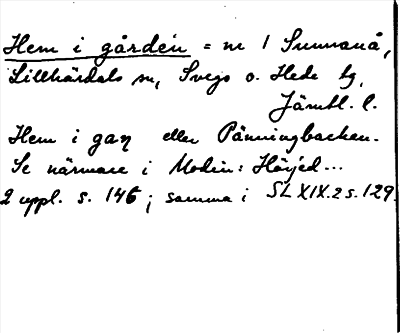 Hem i gården = nr 1 Sunnanå,
Lillhärdals sn, Svegs o. Hede tg,
Jämtl. l.
Hem i gaɳ eller Pänningbacken.
Se närmare i Modin: Härjed...
2 uppl. s. 146 ; samma i SL XIX.2 s. 129.